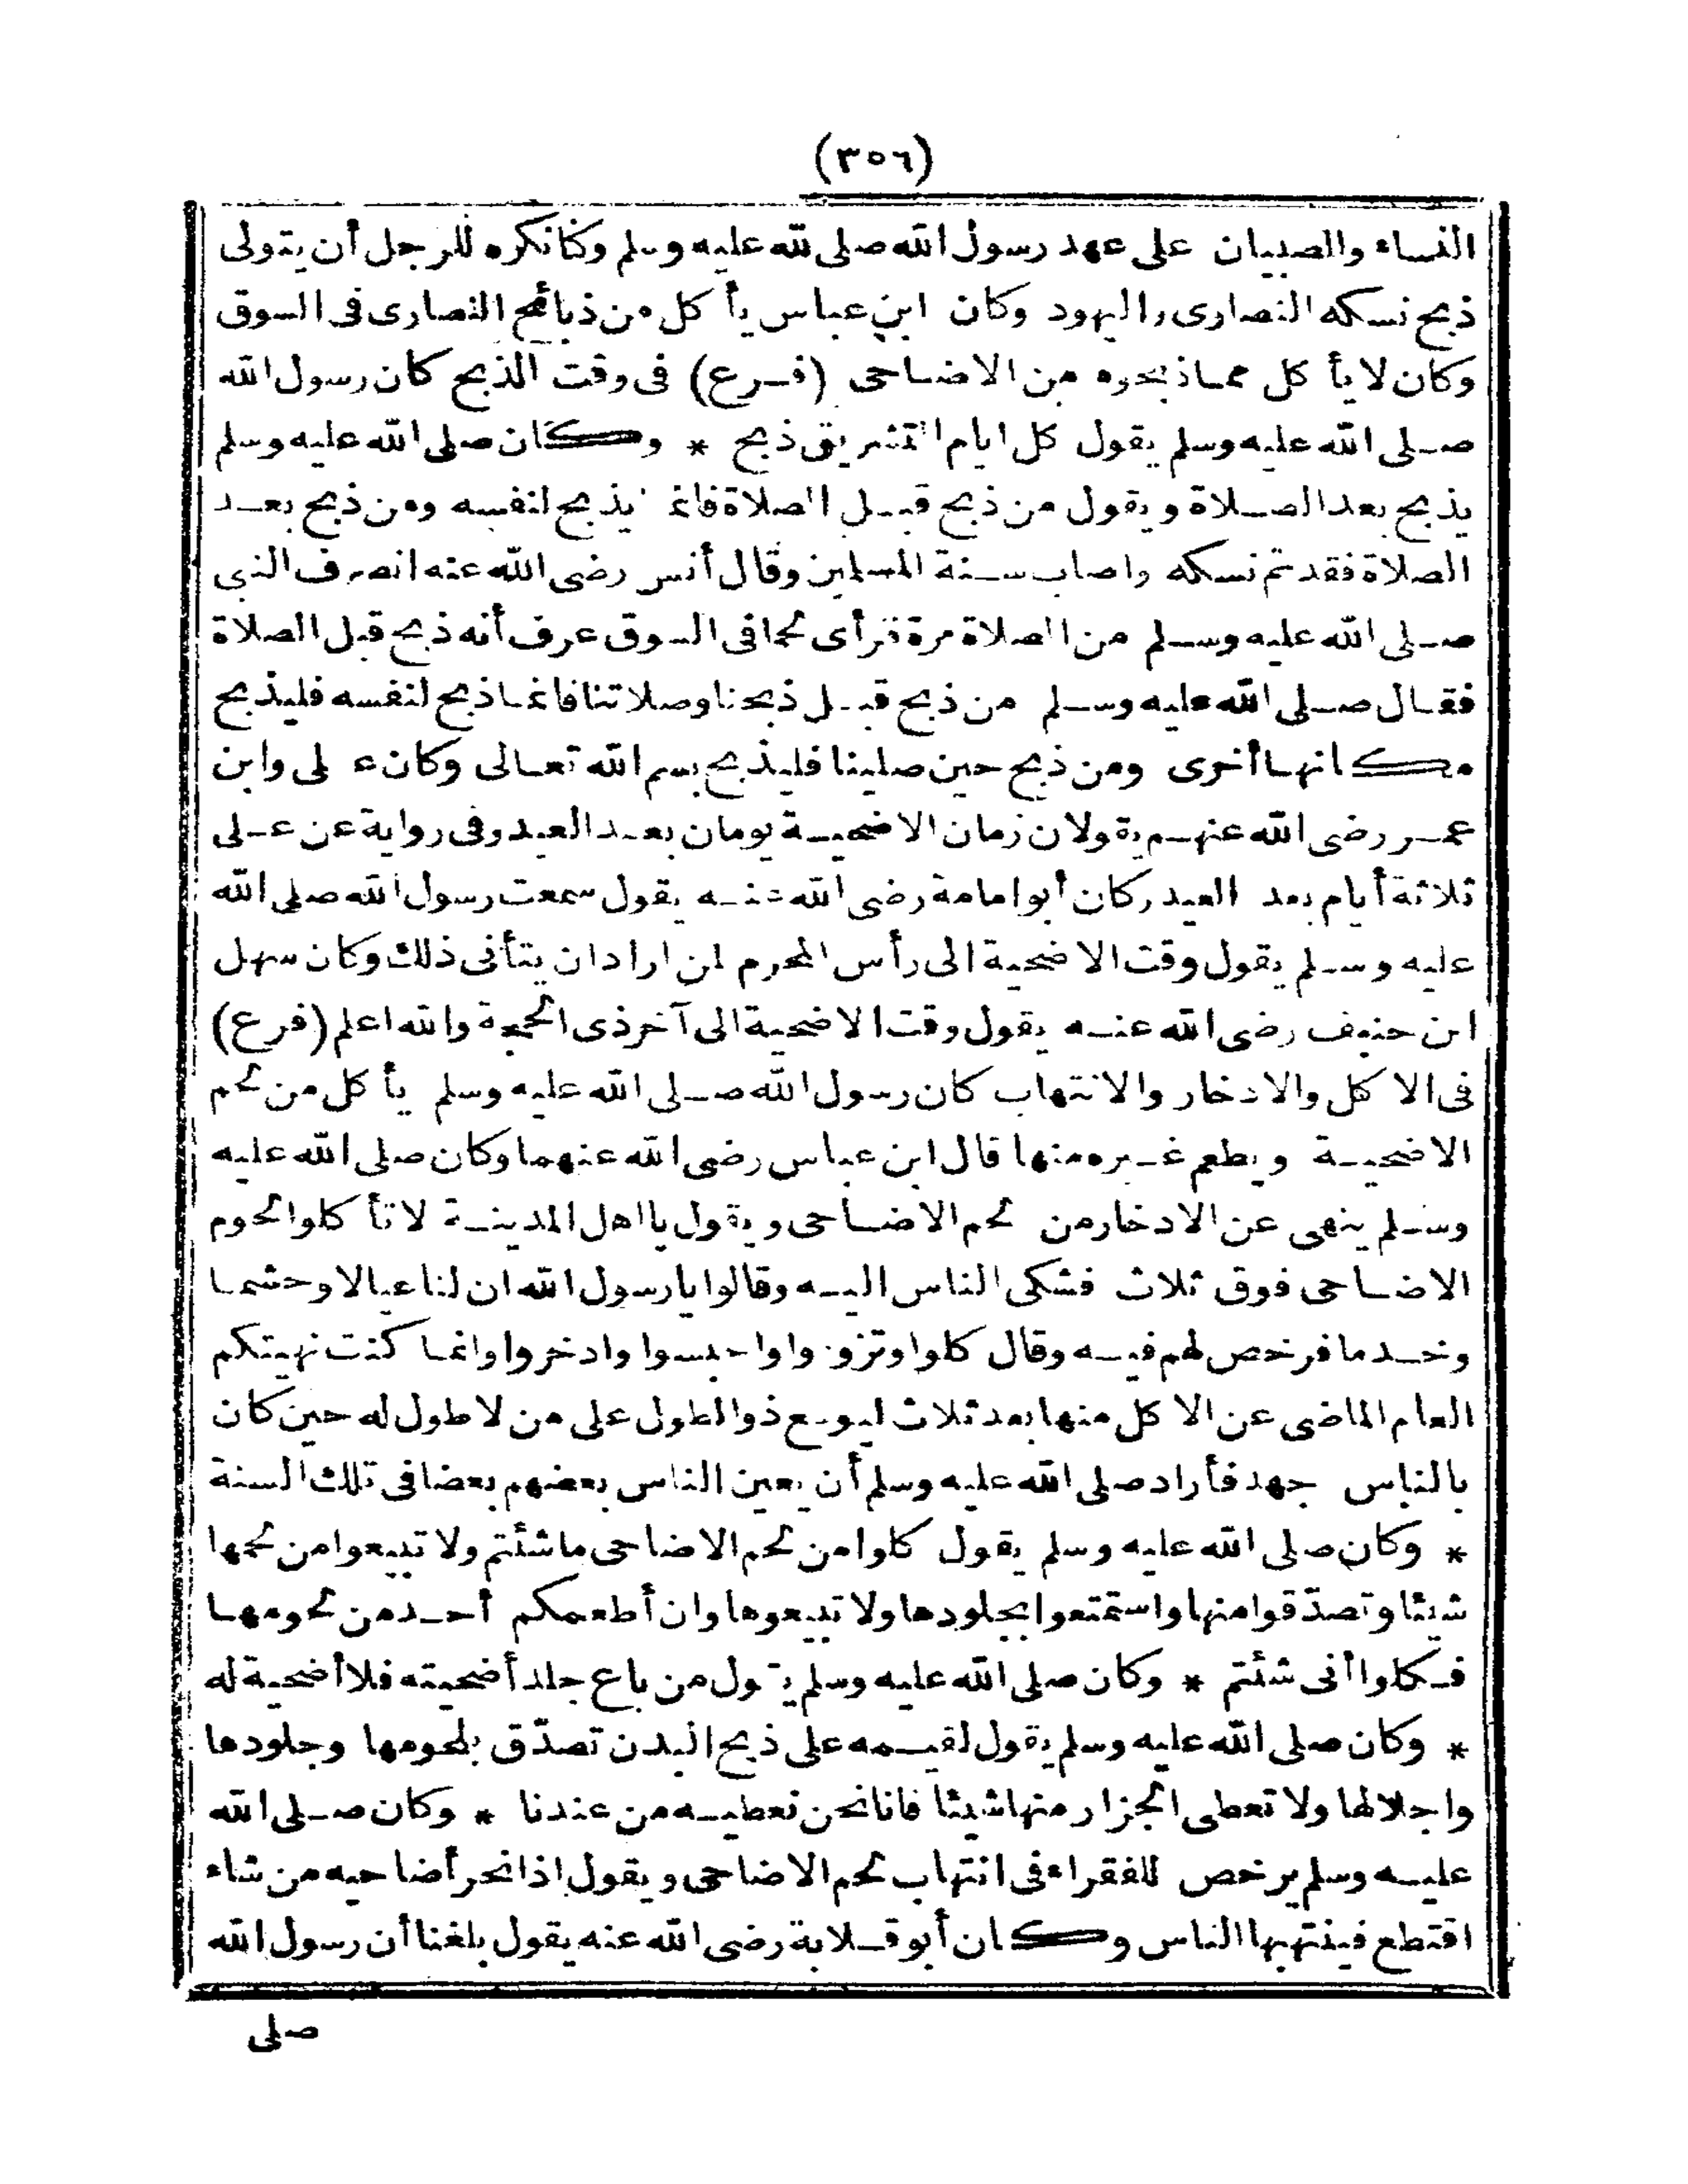 (٣٥٦)
النساء والصبيان على عهد رسول الله صلى الله عليه وسلم وكانكره للرجل أن يتولى
ذبح نسكه النصارى واليهود وكان ابن عباس يأكل من ذبائح النصارى فى السوق
وكان لا يأكل مما ذبحوه من الاضاحى (فرع) فى وقت الذبح كان رسول الله
صلى الله عليه وسلم يقول كل ايام التشريق ذبح * وكان صلى الله عليه وسلم
يذبح بعد الصلاة ويقول من ذبح قبل الصلاة فانما يذبح لنفسه ومن ذبح بعد
الصلاة فقد تم نسكه واصاب سنة المسلمين وقال أنس رضى الله عنه انصرف النبى
صلى الله عليه وسلم من الصلاة مرة فرأى لحما فى السوق عرف أنه ذبح قبل الصلاة
فقال صلى الله عليه وسلم من ذبح قبل ذبحنا وصلاتنا فانما ذبح لنفسه فليذبح
مكانها أخرى ومن ذبح حين صلينا فليذبح بسم الله تعالى وكان على وابن
عمر رضى الله عنهم يقولان زمان الاضحية يومان بعد العيد وفى رواية عن على
ثلاثة أيام بعد العيد وكان أبو امامة رضى الله عنه يقول سمعت رسول الله صلى الله
عليه وسلم يقول وقت الاضحية الى رأس المحرم لمن اراد ان يتأنى ذلك وكان سهل
ابن حنيف رضى الله عنه يقول وقت الاضحية الى آخر ذى الحجة والله اعلم (فرع)
فى الاكل والادخار والانتهاب كان رسول الله صلى الله عليه وسلم يأكل من لحم
الاضحية ويطعم غيره منها قال ابن عباس رضى الله عنهما وكان صلى الله عليه
وسلم ينهى عن الادخار من لحم الاضاحى ويقول يا اهل المدينة لا تأكلوا لحوم
الاضاحى فوق ثلاث فشكى الناس اليه وقالوا يا رسول الله ان لنا عيالا وحشما
وخدما فرخص لهم فيه وقال كلوا وتزودوا واحبسوا وادخروا وانما كنت نهيتكم
العام الماضى عن الاكل منها بعد ثلاث ليوسع ذو الطول على من لا طول له حين كان
بالناس جهد فأراد صلى الله عليه وسلم أن يعين الناس بعضهم بعضا فى تلك السنة
* وكان صلى الله عليه وسلم يقول كلوا من لحم الاضاحى ما شئتم ولا تبيعوا من لحمها
شيئا وتصدّقوا منها واستمتعوا بجلودها ولا تبيعوها وان أطعمكم أحد من لحومها
فكلوا أنى شئتم * وكان صلى الله عليه وسلم يقول من باع جلد أضحيته فلا أضحية له
* وكان صلى الله عليه وسلم يقول لقيمه على ذبح البدن تصدّق بلحومها وجلودها
واجلالها ولا تعطى الجزار منها شيئا فانا نحن نعطيه من عندنا * وكان صلى الله
عليه وسلم يرخص للفقراء فى انتهاب لحم الاضاحى ويقول اذا نحر أضاحيه من شاء
اقتطع فينتهبها الناس وكان أبو قلابة رضى الله عنه يقول بلغنا أن رسول الله
صلى